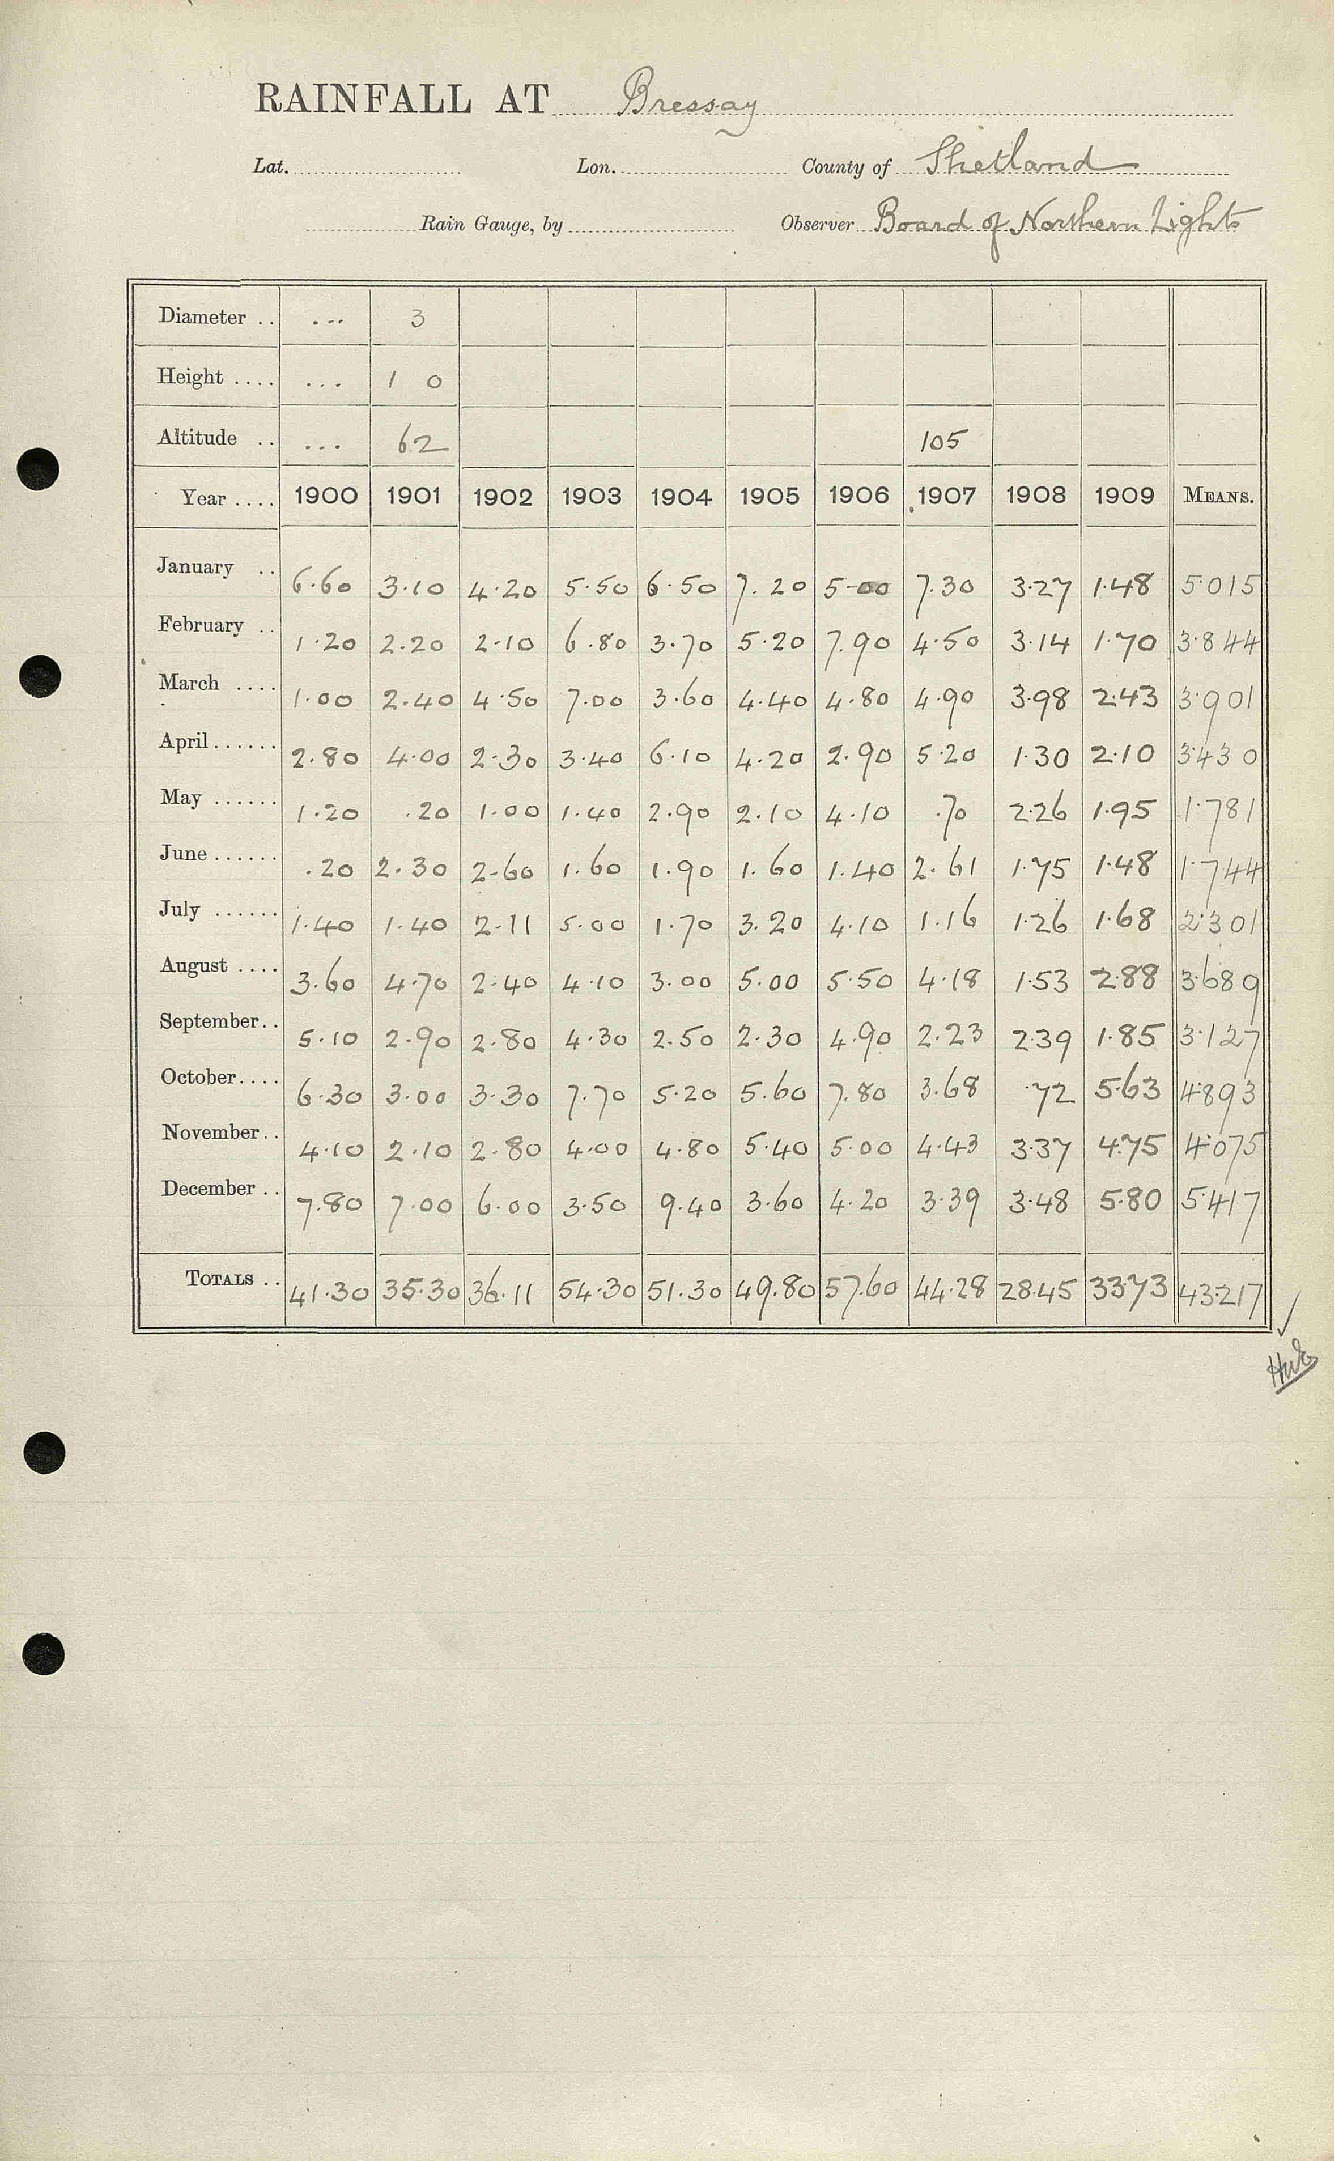 RAINFALL AT Bressay
Lat. Lon. County of Shetland
Rain Gauge, by Observer Board of Northern Lights
Diameter .. ... 3
Height .... ... 1 0
Altitude .. ... 62 105
Year .... 1900 1901 1902 1903 1904 1905 1906 1907 1908 1909 MEANS.
January .. 6.60 3.10 4.20 5.50 6.50 7.20 5.00 7.30 3.27 1.48 5.015
February .. 1.20 2.20 2.10 6.80 3.70 5.20 7.90 4.50 3.14 1.70 3.844
March .... 1.00 2.40 4.50 7.00 3.60 4.40 4.80 4.90 3.98 2.43 3.901
April...... 2.80 4.00 2.30 3.40 6.10 4.20 2.90 5.20 1.30 2.10 3.430
May ...... 1.20 .20 1.00 1.40 2.90 2.10 4.10 .70 2.26 1.95 1.781
June...... .20 2.30 2.60 1.60 1.90 1.60 1.40 2.61 1.75 1.48 1.744
July ...... 1.40 1.40 2.11 5.00 1.70 3.20 4.10 1.16 1.26 1.68 2.301
August .... 3.60 4.70 2.40 4.10 3.00 5.00 5.50 4.18 1.53 2.88 3.689
September.. 5.10 2.90 2.80 4.30 2.50 2.30 4.90 2.23 2.39 1.85 3.127
October.... 6.30 3.00 3.30 7.70 5.20 5.60 7.80 3.68 .72 5.63 4.893
November.. 4.10 2.10 2.80 4.00 4.80 5.40 5.00 4.43 3.37 4.75 4.075
December .. 7.80 7.00 6.00 3.50 9.40 3.60 4.20 3.39 3.48 5.80 5.417
TOTALS .. 41.30 35.30 36.11 54.30 51.30 49.80 57.60 44.28 28.45 33.73 43.217